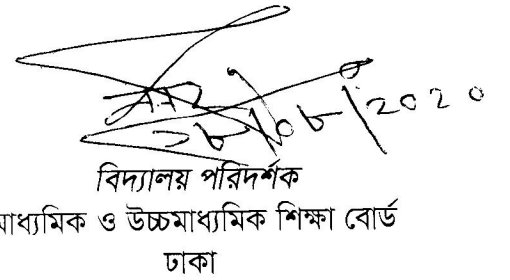 বিদ্যালয় পরিদর্শক
মাধ্যমিক ও উচ্চমাধ্যমিক শিক্ষা বোর্ড
ঢাকা